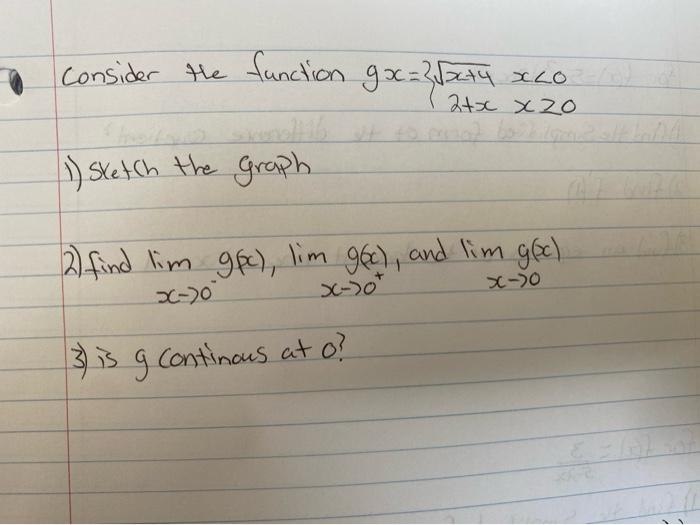 Consider the function gx = { √x+4 x<0
2+x x≥0
1) Sketch the graph
2) find lim g(x), lim g(x), and lim g(x)
x->0⁻ x->0⁺ x->0
3) is g continous at 0?